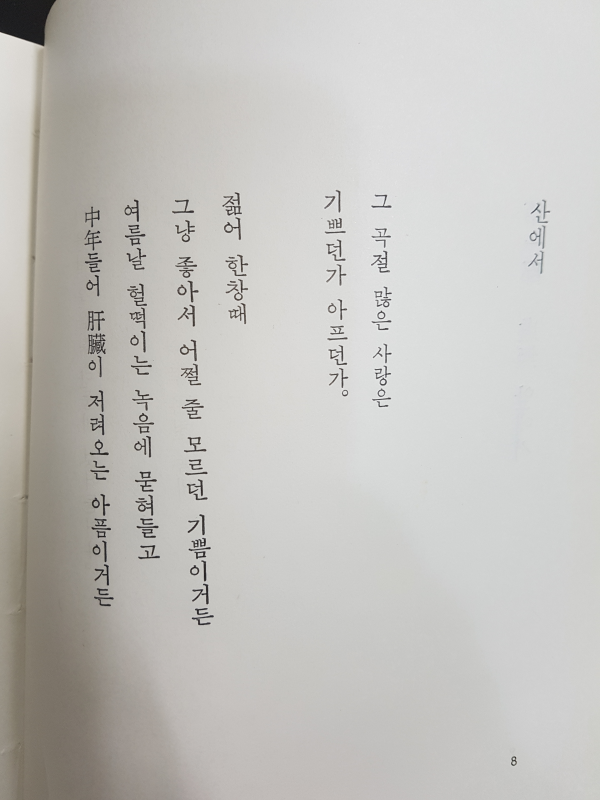 산에서
그 곡절 많은 사랑은
기쁘던가 아프던가。
젊어 한창때
그냥 좋아서 어쩔 줄 모르던 기쁨이거든
여름날 헐떡이는 녹음에 묻혀들고
中年들어 肝臟이 저려오는 아픔이거든
8